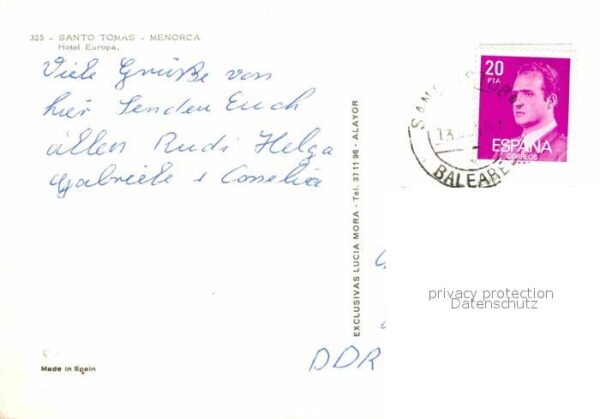 325 - SANTO TOMAS - MENORCA
Hotel Europa.
Viele Grüße von
hier senden Euch
allen Rudi Helga
Gabriele + Cornelia
EXCLUSIVAS LUCIA MORA - Tel. 371196 - ALAYOR
20
PTA
ESPAÑA
CORREOS
BALEARES
privacy protection
Datenschutz
DDR
Made in Spain